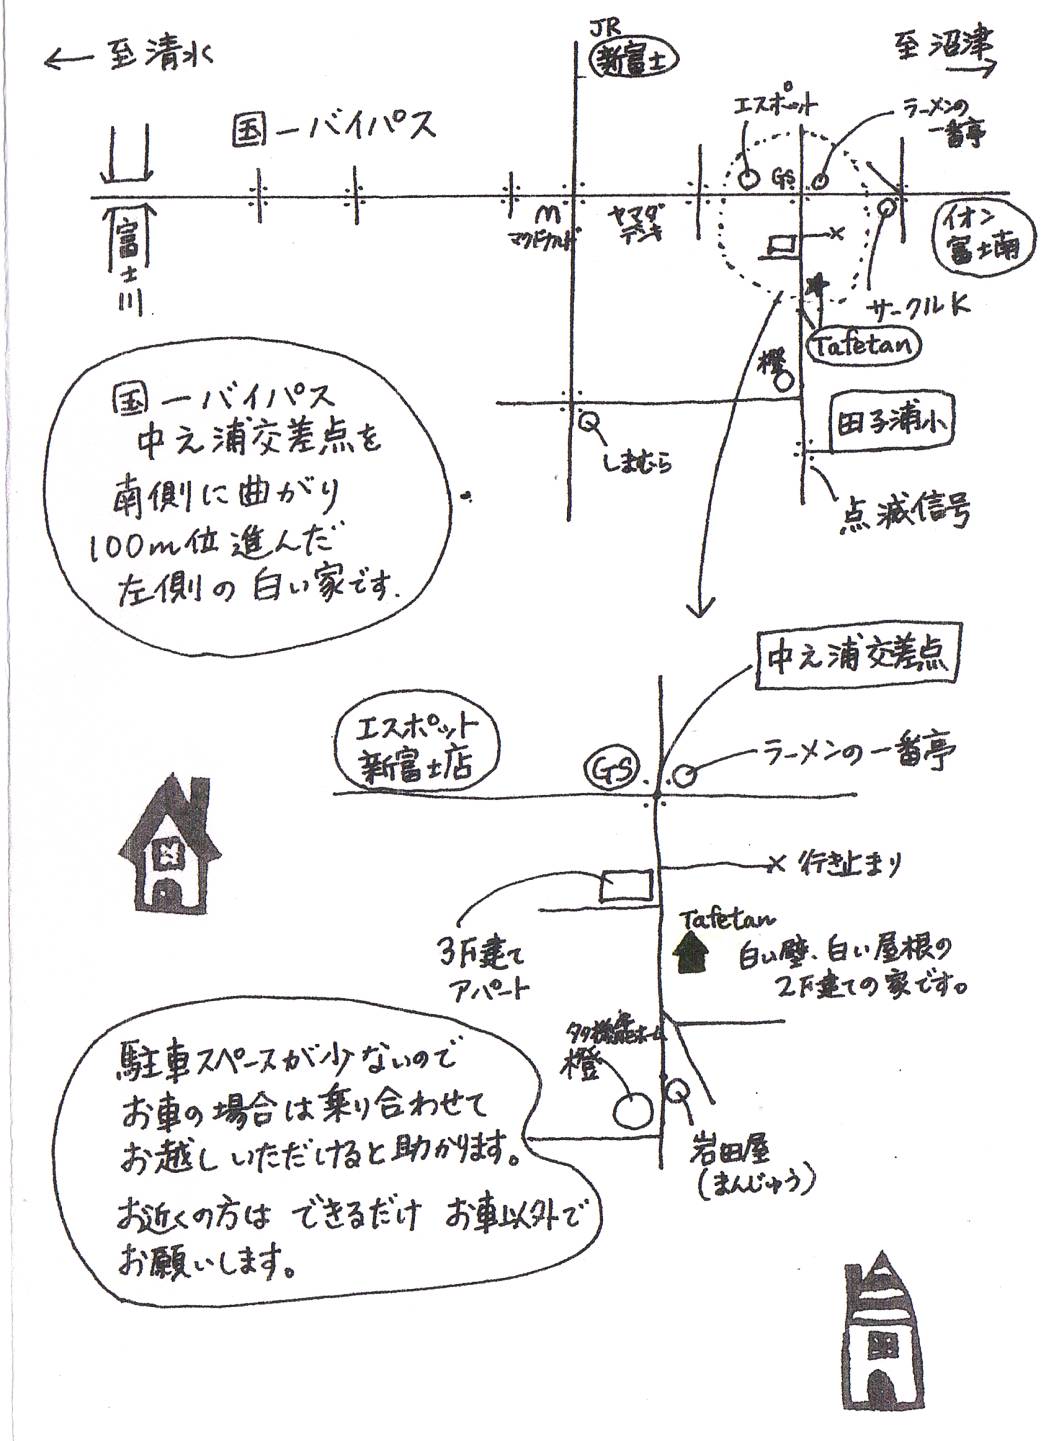 至清水
JR
新富士
至沼津
国一バイパス
エスポット
ラーメンの
一番亭
GS
富士川
M
マクドナルド
ヤマダ
デンキ
イオン
富士南
サークルK
Tafetan
橙
田子浦小
しまむら
点滅信号
国一バイパス
中之浦交差点を
南側に曲がり
100m位進んだ
左側の白い家です.
中之浦交差点
エスポット
新富士店
GS
ラーメンの一番亭
行き止まり
3F建て
アパート
Tafetan
白い壁、白い屋根の
2F建ての家です。
橙
岩田屋
(まんじゅう)
駐車スペースが少ないので
お車の場合は乗り合わせて
お越しいただけると助かります。
お近くの方は できるだけ お車以外で
お願いします。